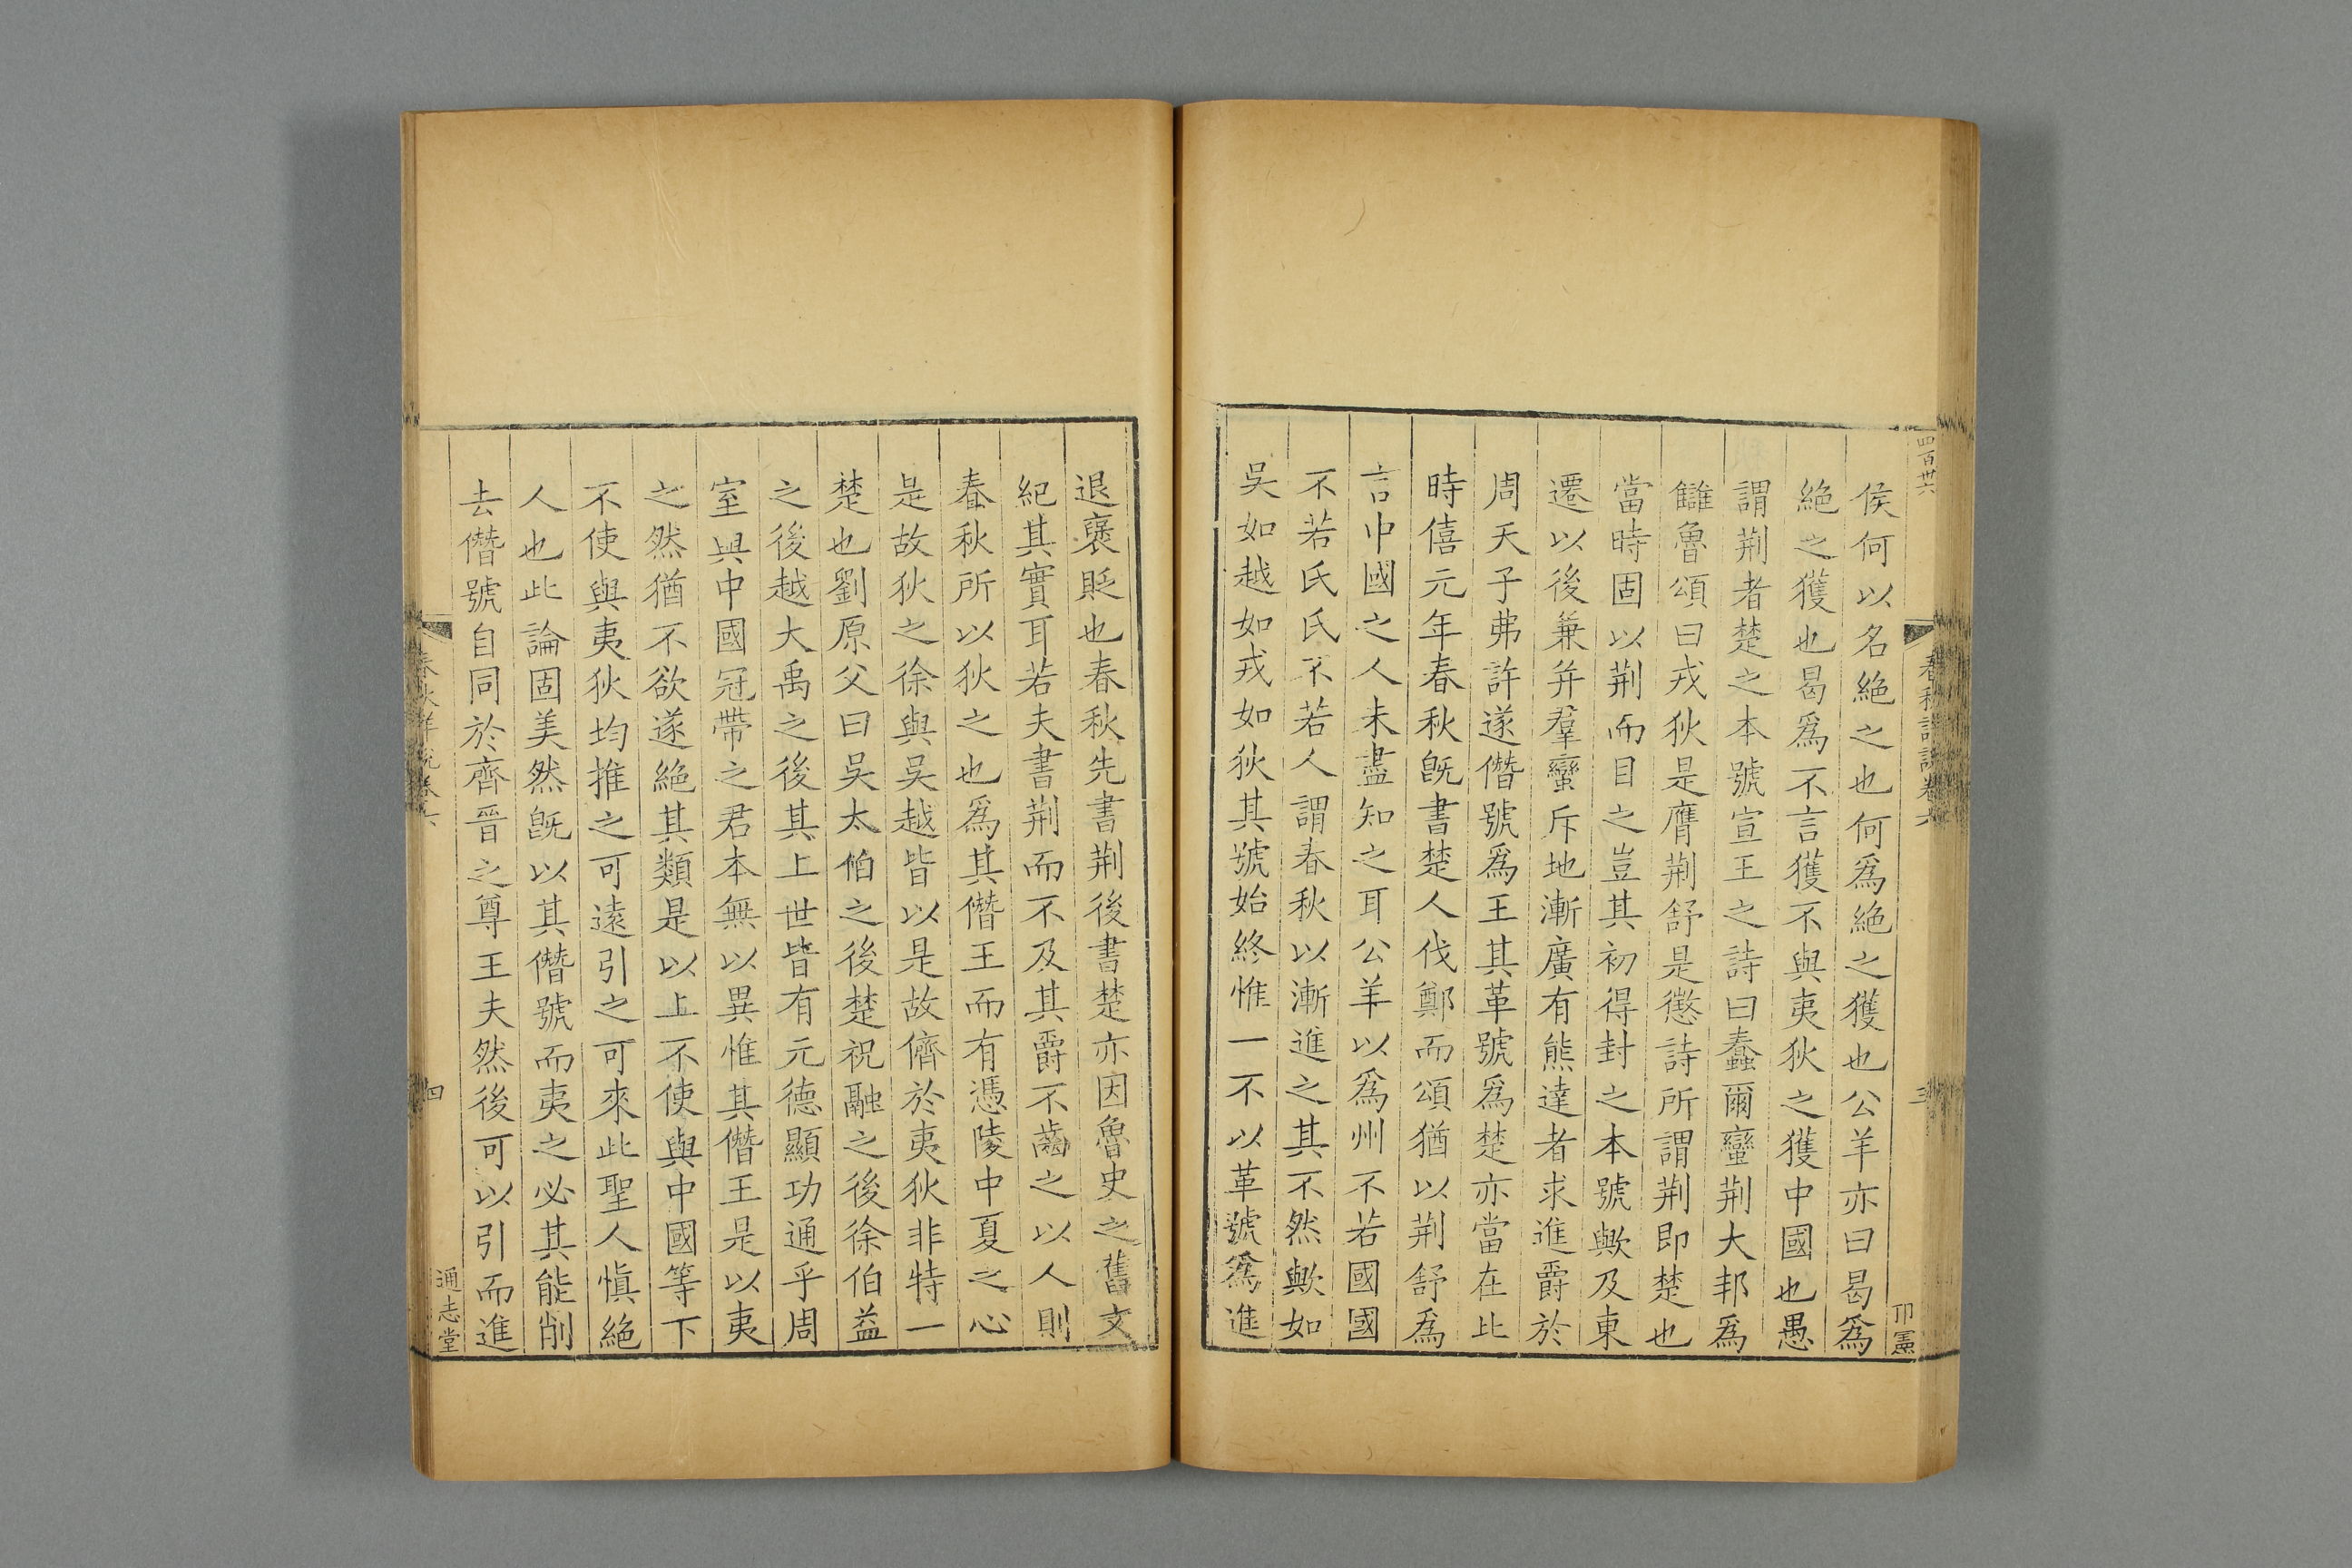 四百卅六
侯何以名絶之也何爲絶之獲也公羊亦曰曷爲
絶之獲也曷爲不言獲不與夷狄之獲中國也愚
謂荆者楚之本號宣王之詩曰蠢爾蠻荆大邦爲
讎魯頌曰戎狄是膺荆舒是懲詩所謂荆即楚也
當時固以荆而目之豈其初得封之本號歟及東
遷以後兼并羣蠻斥地漸廣有熊達者求進爵於
周天子弗許遂僭號爲王其革號爲楚亦當在此
時僖元年春秋旣書楚人伐鄭而頌猶以荆舒爲
言中國之人未盡知之耳公羊以爲州不若國國
不若氏氏不若人謂春秋以漸進之其不然歟如
吳如越如戎如狄其號始終惟一不以革號爲進
退襃貶也春秋先書荆後書楚亦因魯史之舊文
紀其實耳若夫書荆而不及其爵不齒之以人則
春秋所以狄之也爲其僭王而有憑陵中夏之心
是故狄之徐與吳越皆以是故儕於夷狄非特一
楚也劉原父曰吳太伯之後楚祝融之後徐伯益
之後越大禹之後其上世皆有元德顯功通乎周
室與中國冠帶之君本無以異惟其僭王是以夷
之然猶不欲遂絶其類是以上不使與中國等下
不使與夷狄均推之可遠引之可來此聖人慎絶
人也此論固美然旣以其僭號而夷之必其能削
去僭號自同於齊晉之尊王夫然後可以引而進
春秋詳說卷六
四
通志堂